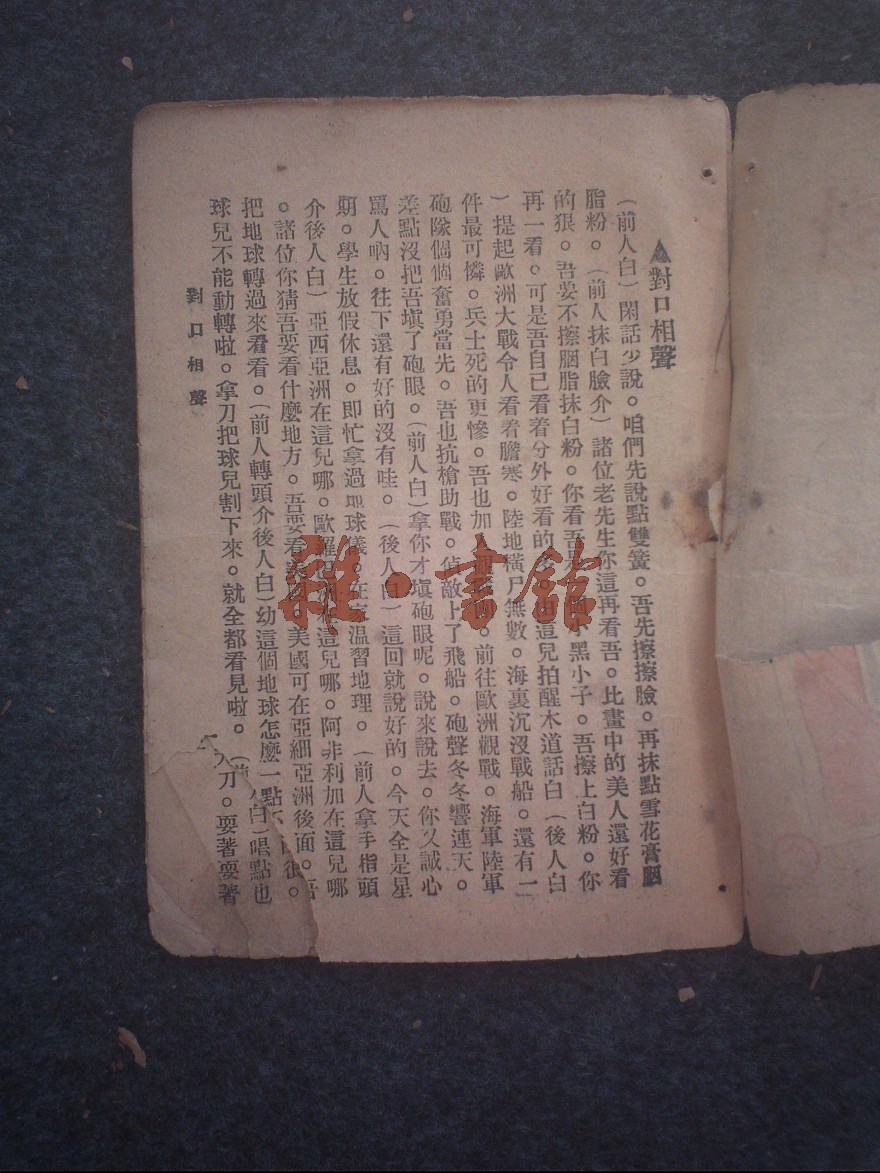 ▲對口相聲
(前人白)閑話少說。咱們先說點雙簧。吾先擦擦臉。再抹點雪花膏胭
脂粉。(前人抹白臉介)諸位老先生你這再看吾。比畫中的美人還好看
的狠。吾要不擦胭脂抹白粉。你看吾是小黑小子。吾擦上白粉。你
再一看。可是吾自己看着分外好看的。這兒拍醒木道話白(後人白
)提起歐洲大戰令人看着膽寒。陸地橫尸無數。海裏沉沒戰船。還有一
件最可憐。兵士死的更慘。吾也加入。前往歐洲觀戰。海軍陸軍
砲隊個個奮勇當先。吾也抗槍助戰。偵敵上了飛船。砲聲冬冬響連天。
差點沒把吾填了砲眼。(前人白)拿你才塡砲眼呢。說來說去。你又誠心
罵人吶。往下還有好的沒有哇。(後人白)這回就說好的。今天全是星
期。學生放假休息。即忙拿過地球儀。在家溫習地理。(前人拿手指頭
介後人白)亞西亞洲在這兒哪。歐羅巴在這兒哪。阿非利加在這兒哪
。諸位你猜吾要看什麼地方。吾要看美國。美國可在亞細亞洲後面。吾
把地球轉過來看看。(前人轉頭介後人白)幼這個地球怎麼一點
球兒不能動轉啦。拿刀把球兒割下來。就全都看見啦。(前人白)唱點也
刀。耍著耍著
對口相聲
雜·書館